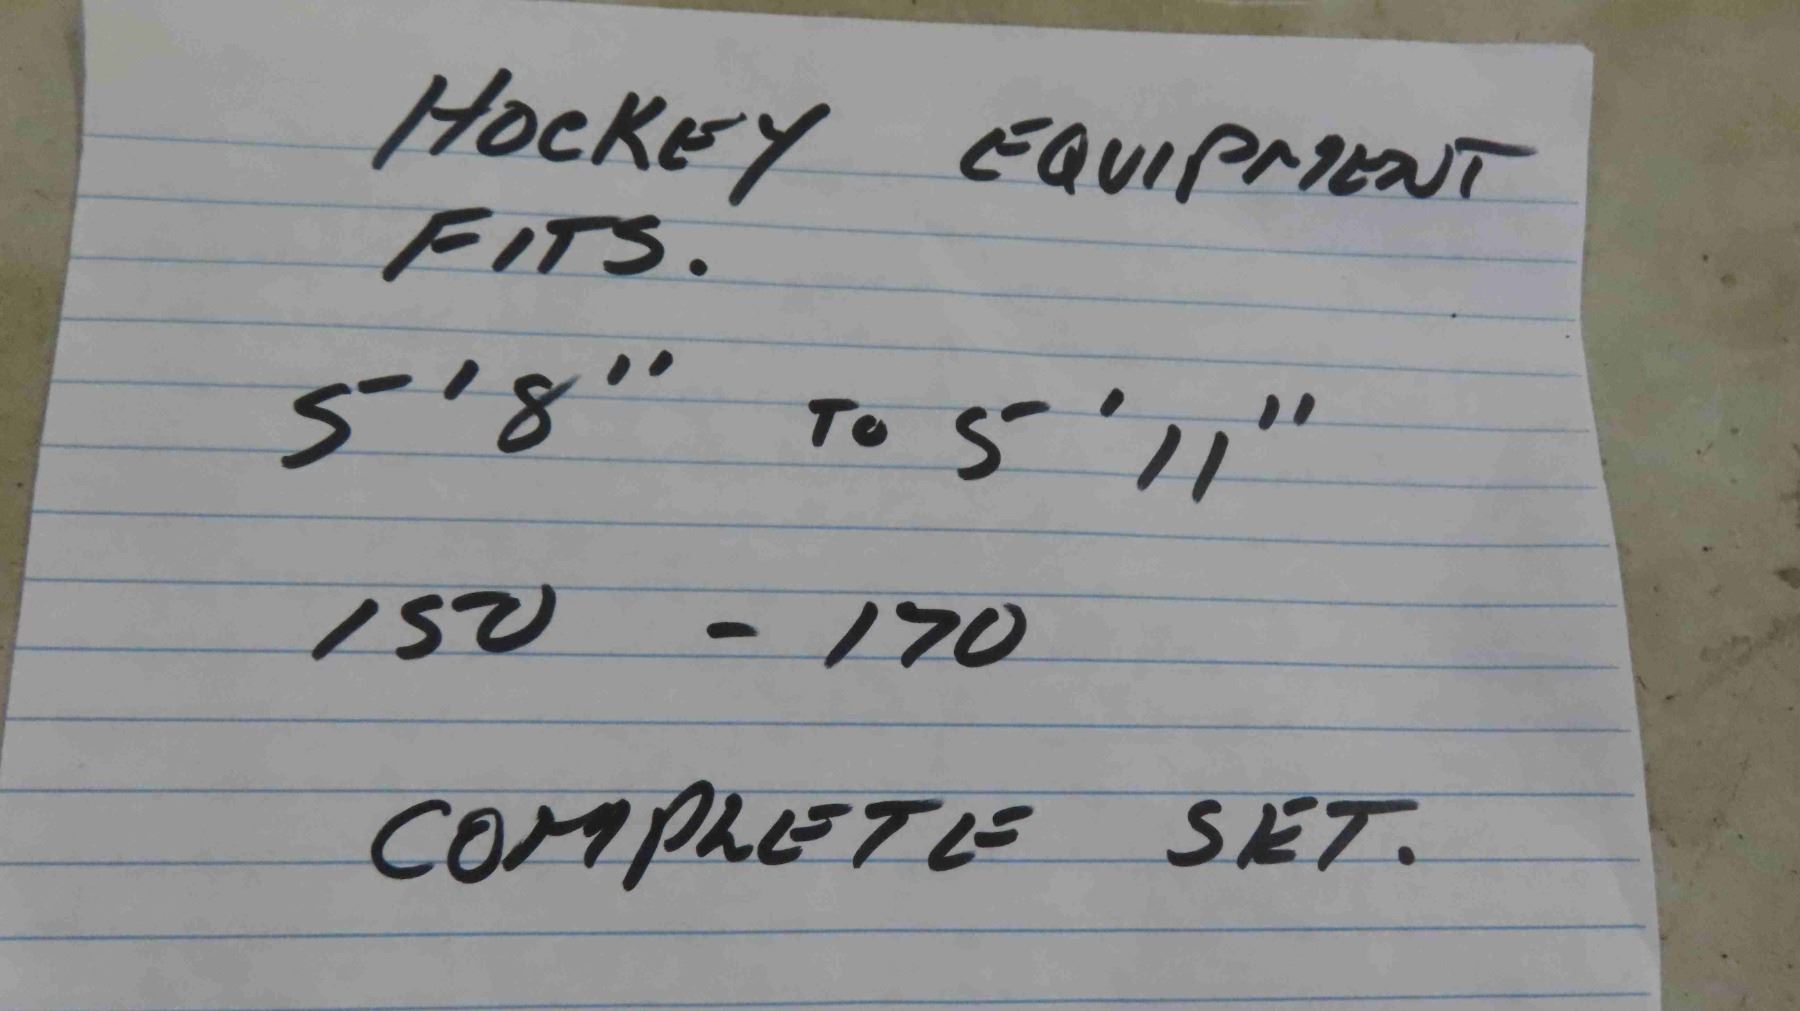 HOCKEY EQUIPMENT
FITS.
5'8" TO 5'11"
150 - 170
COMPLETE SET.